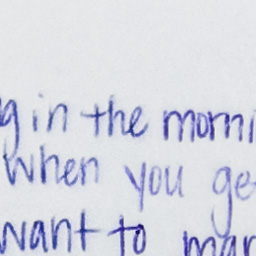 g in the morni
when you ge
want to mar